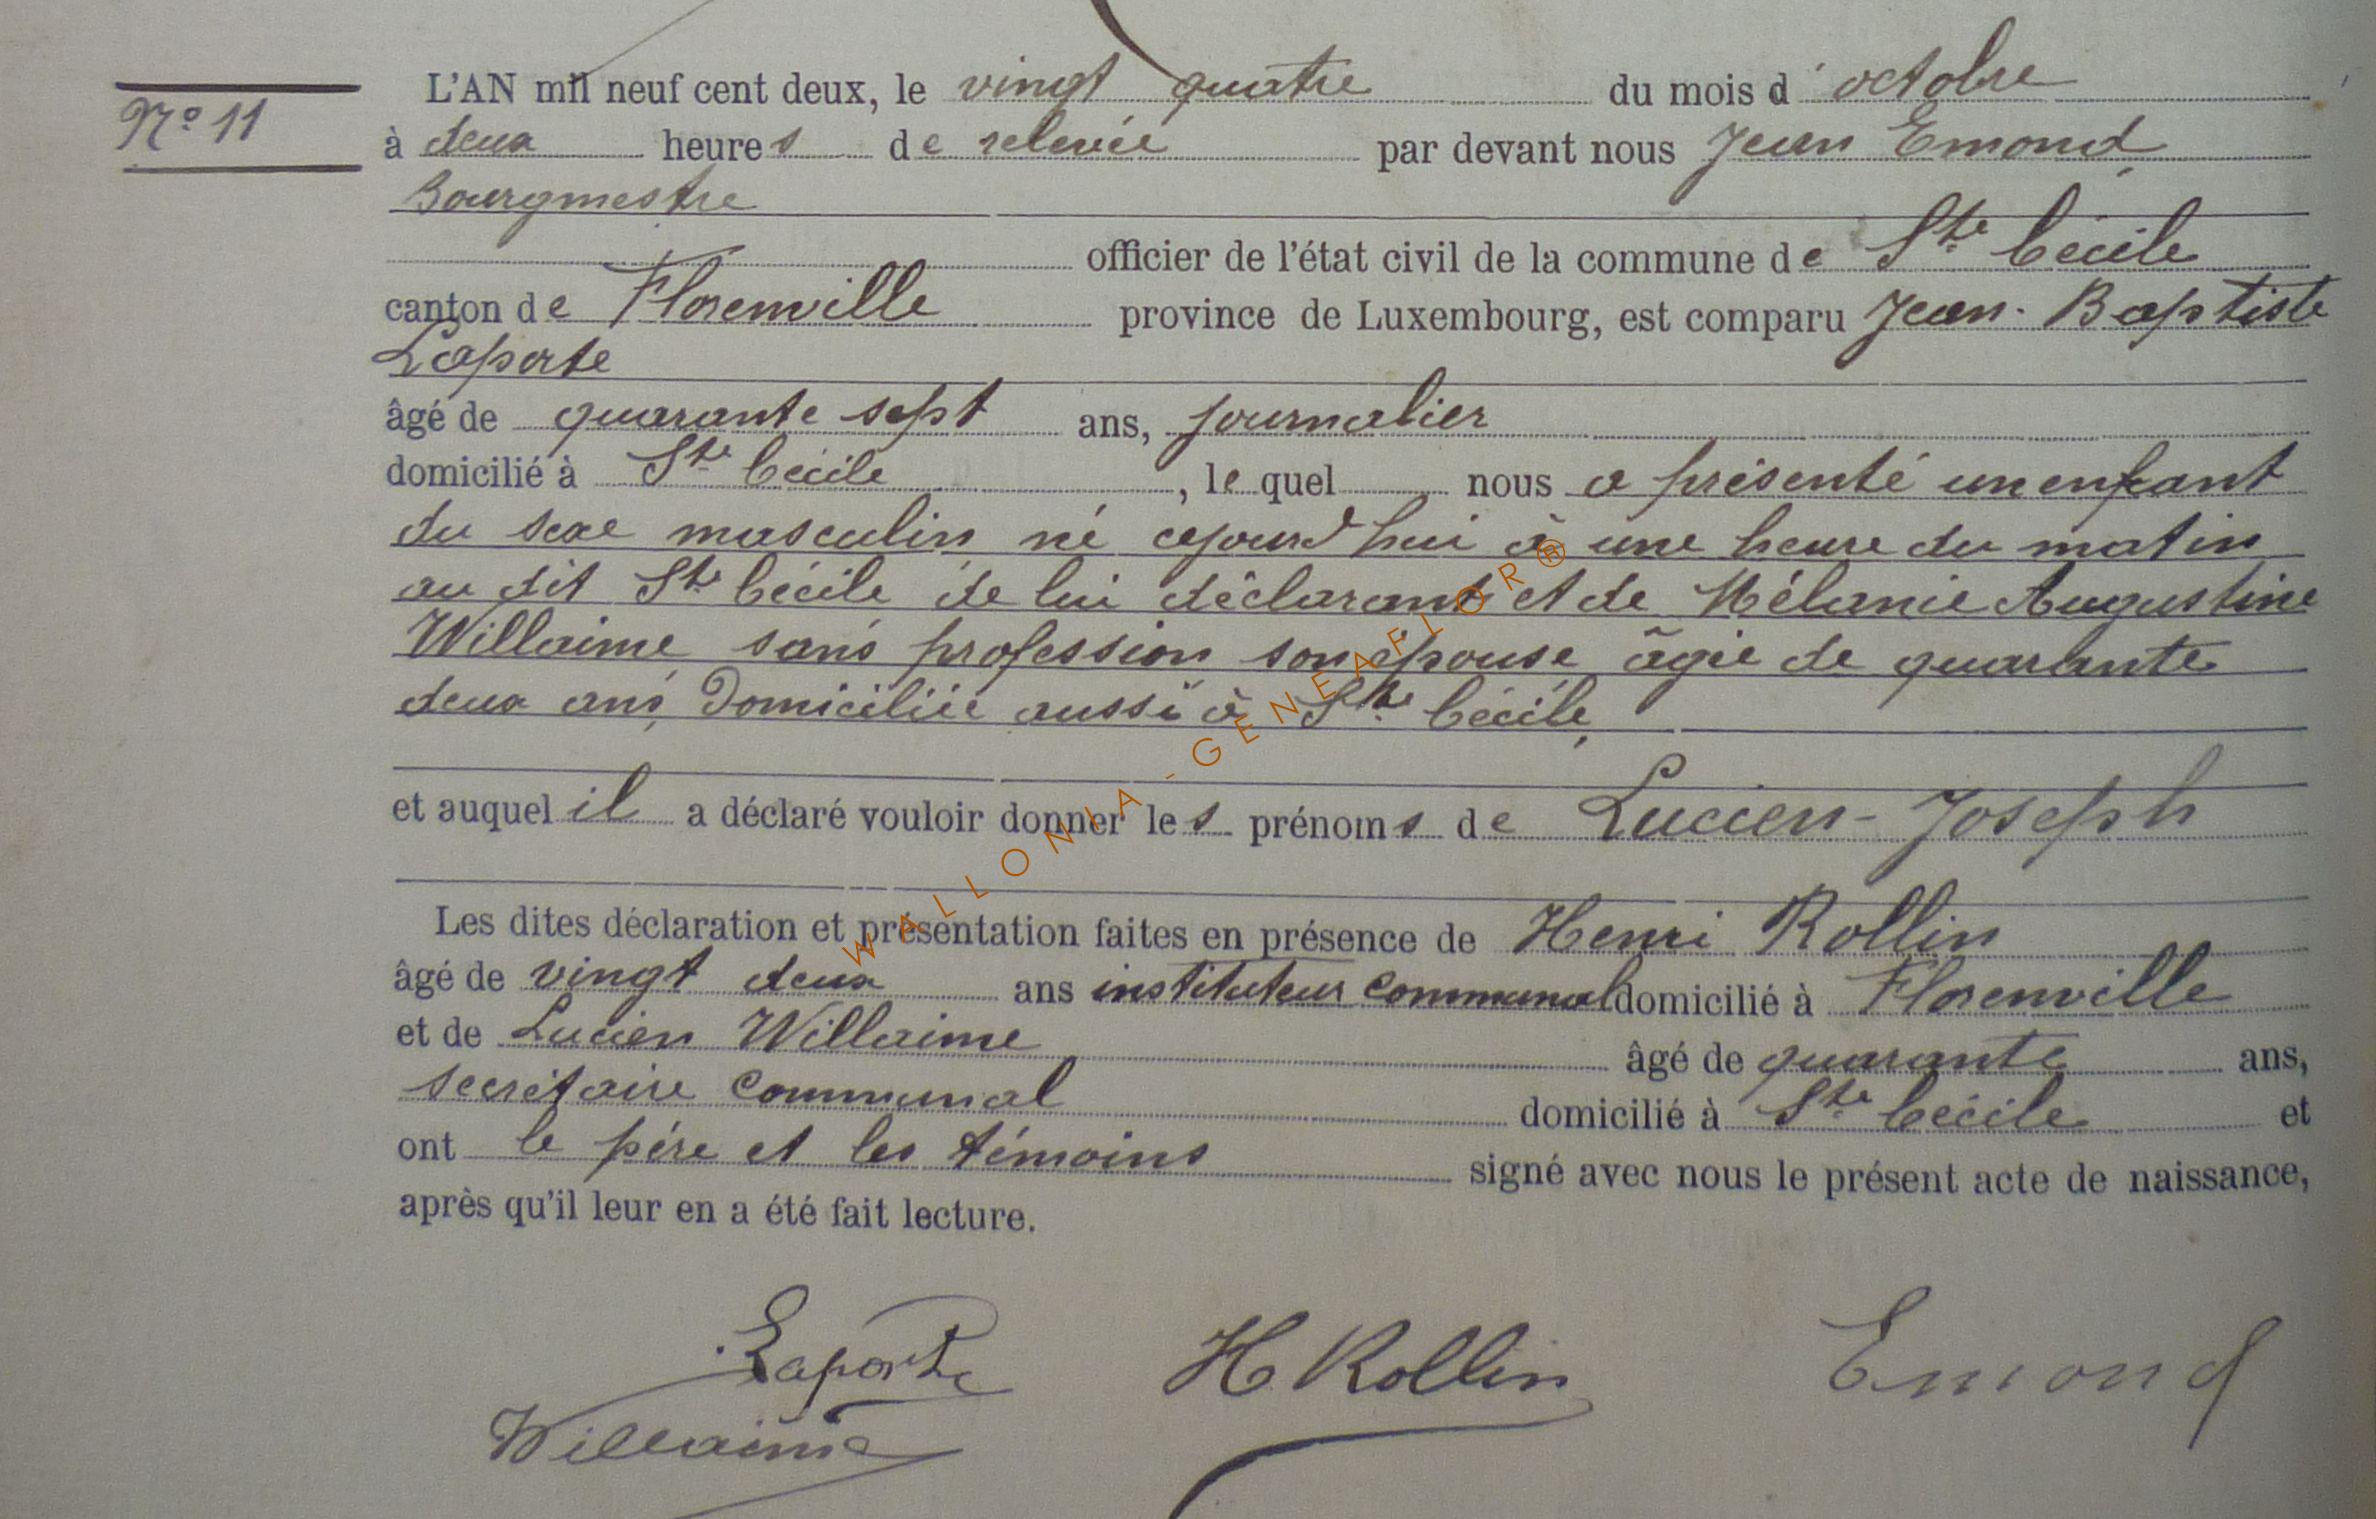 N° 11
L'AN mil neuf cent deux, le vingt quatre du mois d'octobre
à deux heures de relevée par devant nous Jean Emond,
Bourgmestre
officier de l'état civil de la commune de Ste Cécile
canton de Florenville province de Luxembourg, est comparu Jean-Baptiste
Laporte
âgé de quarante sept ans, journalier
domicilié à Ste Cécile, le quel nous a présenté un enfant
du sexe masculin né cejourd'hui à une heure du matin
au dit Ste Cécile de lui déclarant et de Mélanie Augustine
Willaime sans profession son épouse âgée de quarante
deux ans, domiciliée aussi à Ste Cécile,
et auquel il a déclaré vouloir donner les prénoms de Lucien-Joseph
Les dites déclaration et présentation faites en présence de Henri Rollin
âgé de vingt deux ans instituteur communal domicilié à Florenville
et de Lucien Willaime âgé de quarante ans,
secrétaire communal domicilié à Ste Cécile et
ont le père et les témoins signé avec nous le présent acte de naissance,
après qu'il leur en a été fait lecture.
Laporte H Rollin Emond
Willaime
WALLONIA-GENEAFLOR®